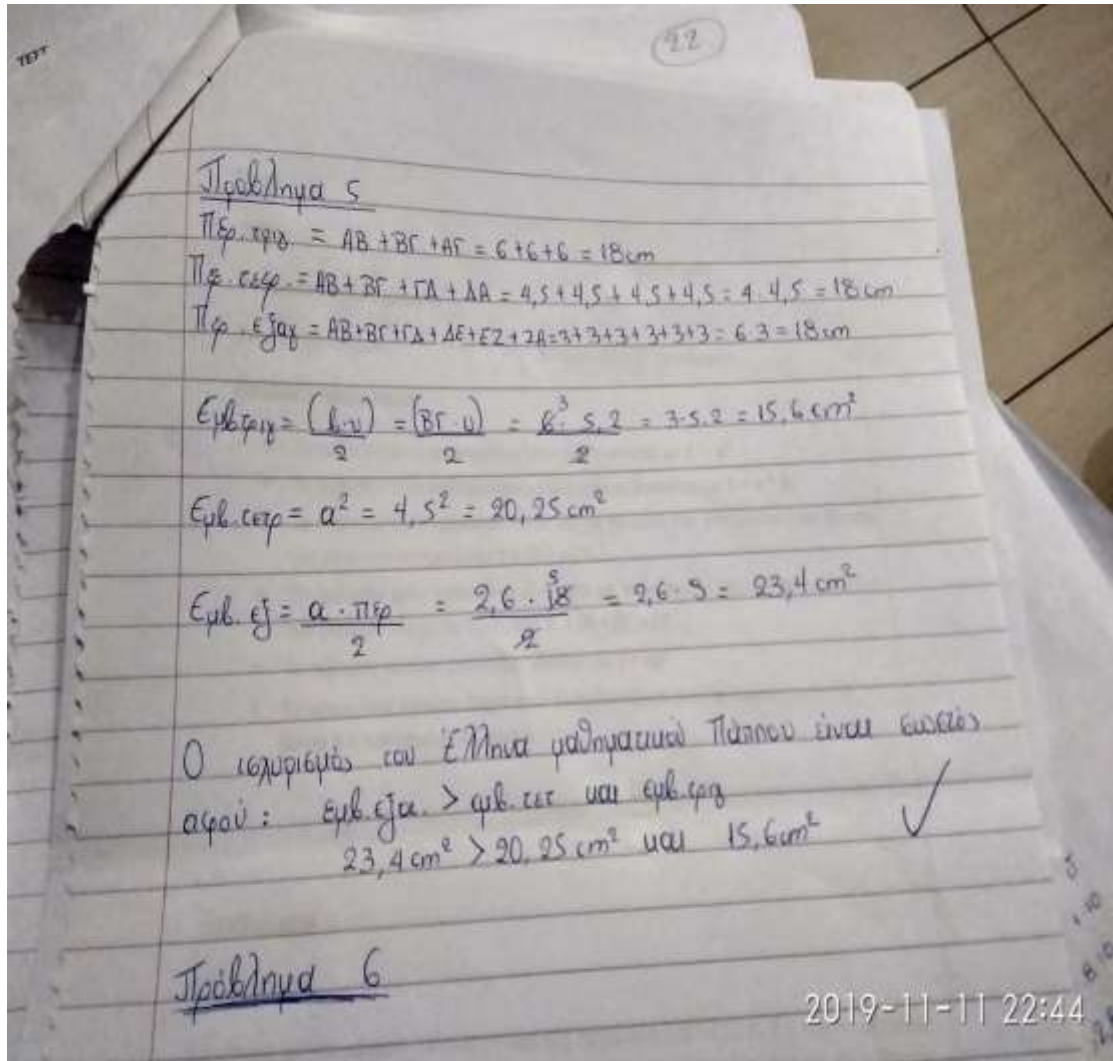 TEST
22
Πρόβλημα 5
Περ. τριγ = AB + ΒΓ + ΑΓ = 6 + 6 + 6 = 18 cm
Περ. τετρ. = AB + ΒΓ + ΓΔ + ΔΑ = 4,5 + 4,5 + 4,5 + 4,5 = 4 · 4,5 = 18 cm
Περ. εξαγ = AB + ΒΓ + ΓΔ + ΔΕ + ΕΖ + ΖΑ = 3 + 3 + 3 + 3 + 3 + 3 = 6 · 3 = 18 cm
Εμβ τριγ = (β·υ)/2 = (ΒΓ · υ)/2 = 6 3 · 5,2/2 = 3 · 5,2 = 15,6 cm²
Εμβ. τετρ = α² = 4,5² = 20,25 cm²
Εμβ. εξ = α · περ/2 = 2,6 · 18 9/2 = 2,6 · 9 = 23,4 cm²
Ο ισχυρισμός του Έλληνα μαθηματικού Πάππου είναι σωστός
αφού : εμβ. εξα. > εμβ. τετ και εμβ. τριγ
23,4 cm² > 20,25 cm² και 15,6 cm² ✓
Πρόβλημα 6
2019-11-11 22:44